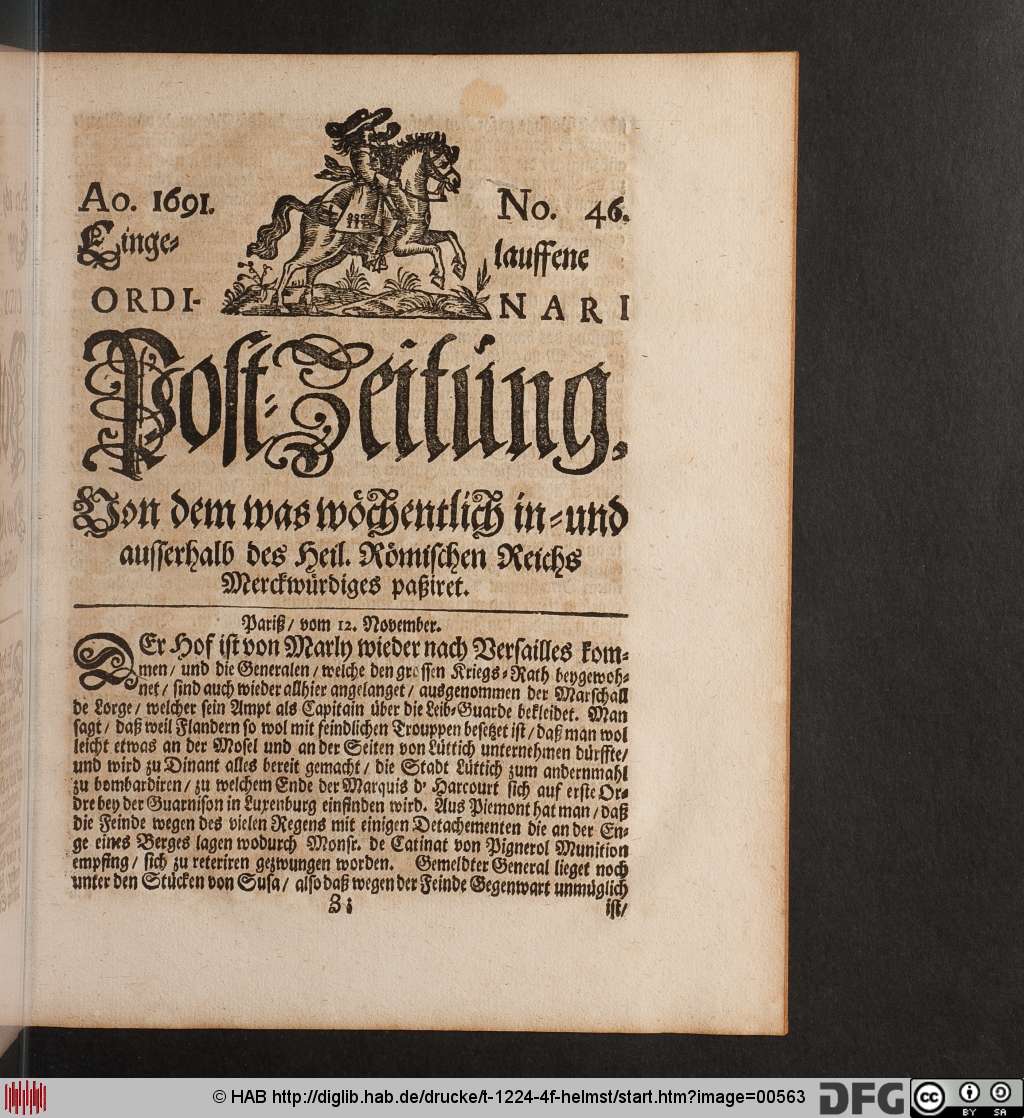 Ao. 1691. No. 46.
Einge- lauffene
ORDI- NARI
Post-Zeitung,
Von dem was wöchentlich in-und
ausserhalb des Heil. Römischen Reichs
Merckwürdiges paßiret.
Pariß/ vom 12. November.
DEr Hof ist von Marly wieder nach Versailles kom-
men/ und die Generalen/ welche den grossen Kriegs-Rath beygewoh-
net/ sind auch wieder allhier angelanget/ ausgenommen der Marschall
de Lorge/ welcher sein Ampt als Capitain über die Leib-Guarde bekleidet. Man
sagt/ daß weil Flandern so wol mit feindlichen Trouppen besetzet ist/ daß man wol
leicht etwas an der Mosel und an der Seiten von Lüttich unternehmen dürffte/
und wird zu Dinant alles bereit gemacht/ die Stadt Lüttich zum andernmahl
zu bombardiren/ zu welchem Ende der Marquis d' Harcourt sich auf erste Or-
dre bey der Guarnison in Luxenburg einfinden wird. Aus Piemont hat man/ daß
die Feinde wegen des vielen Regens mit einigen Detachementen die an der En-
ge eines Berges lagen wodurch Monsr. de Catinat von Pignerol Munition
empfing/ sich zu reteriren gezwungen worden. Gemeldter General lieget noch
unter den Stücken von Susa/ also daß wegen der Feinde Gegenwart unmüglich
Z i ist/
© HAB http://diglib.hab.de/drucke/t-1224-4f-helmst/start.htm?image=00563
DFG
cc BY SA